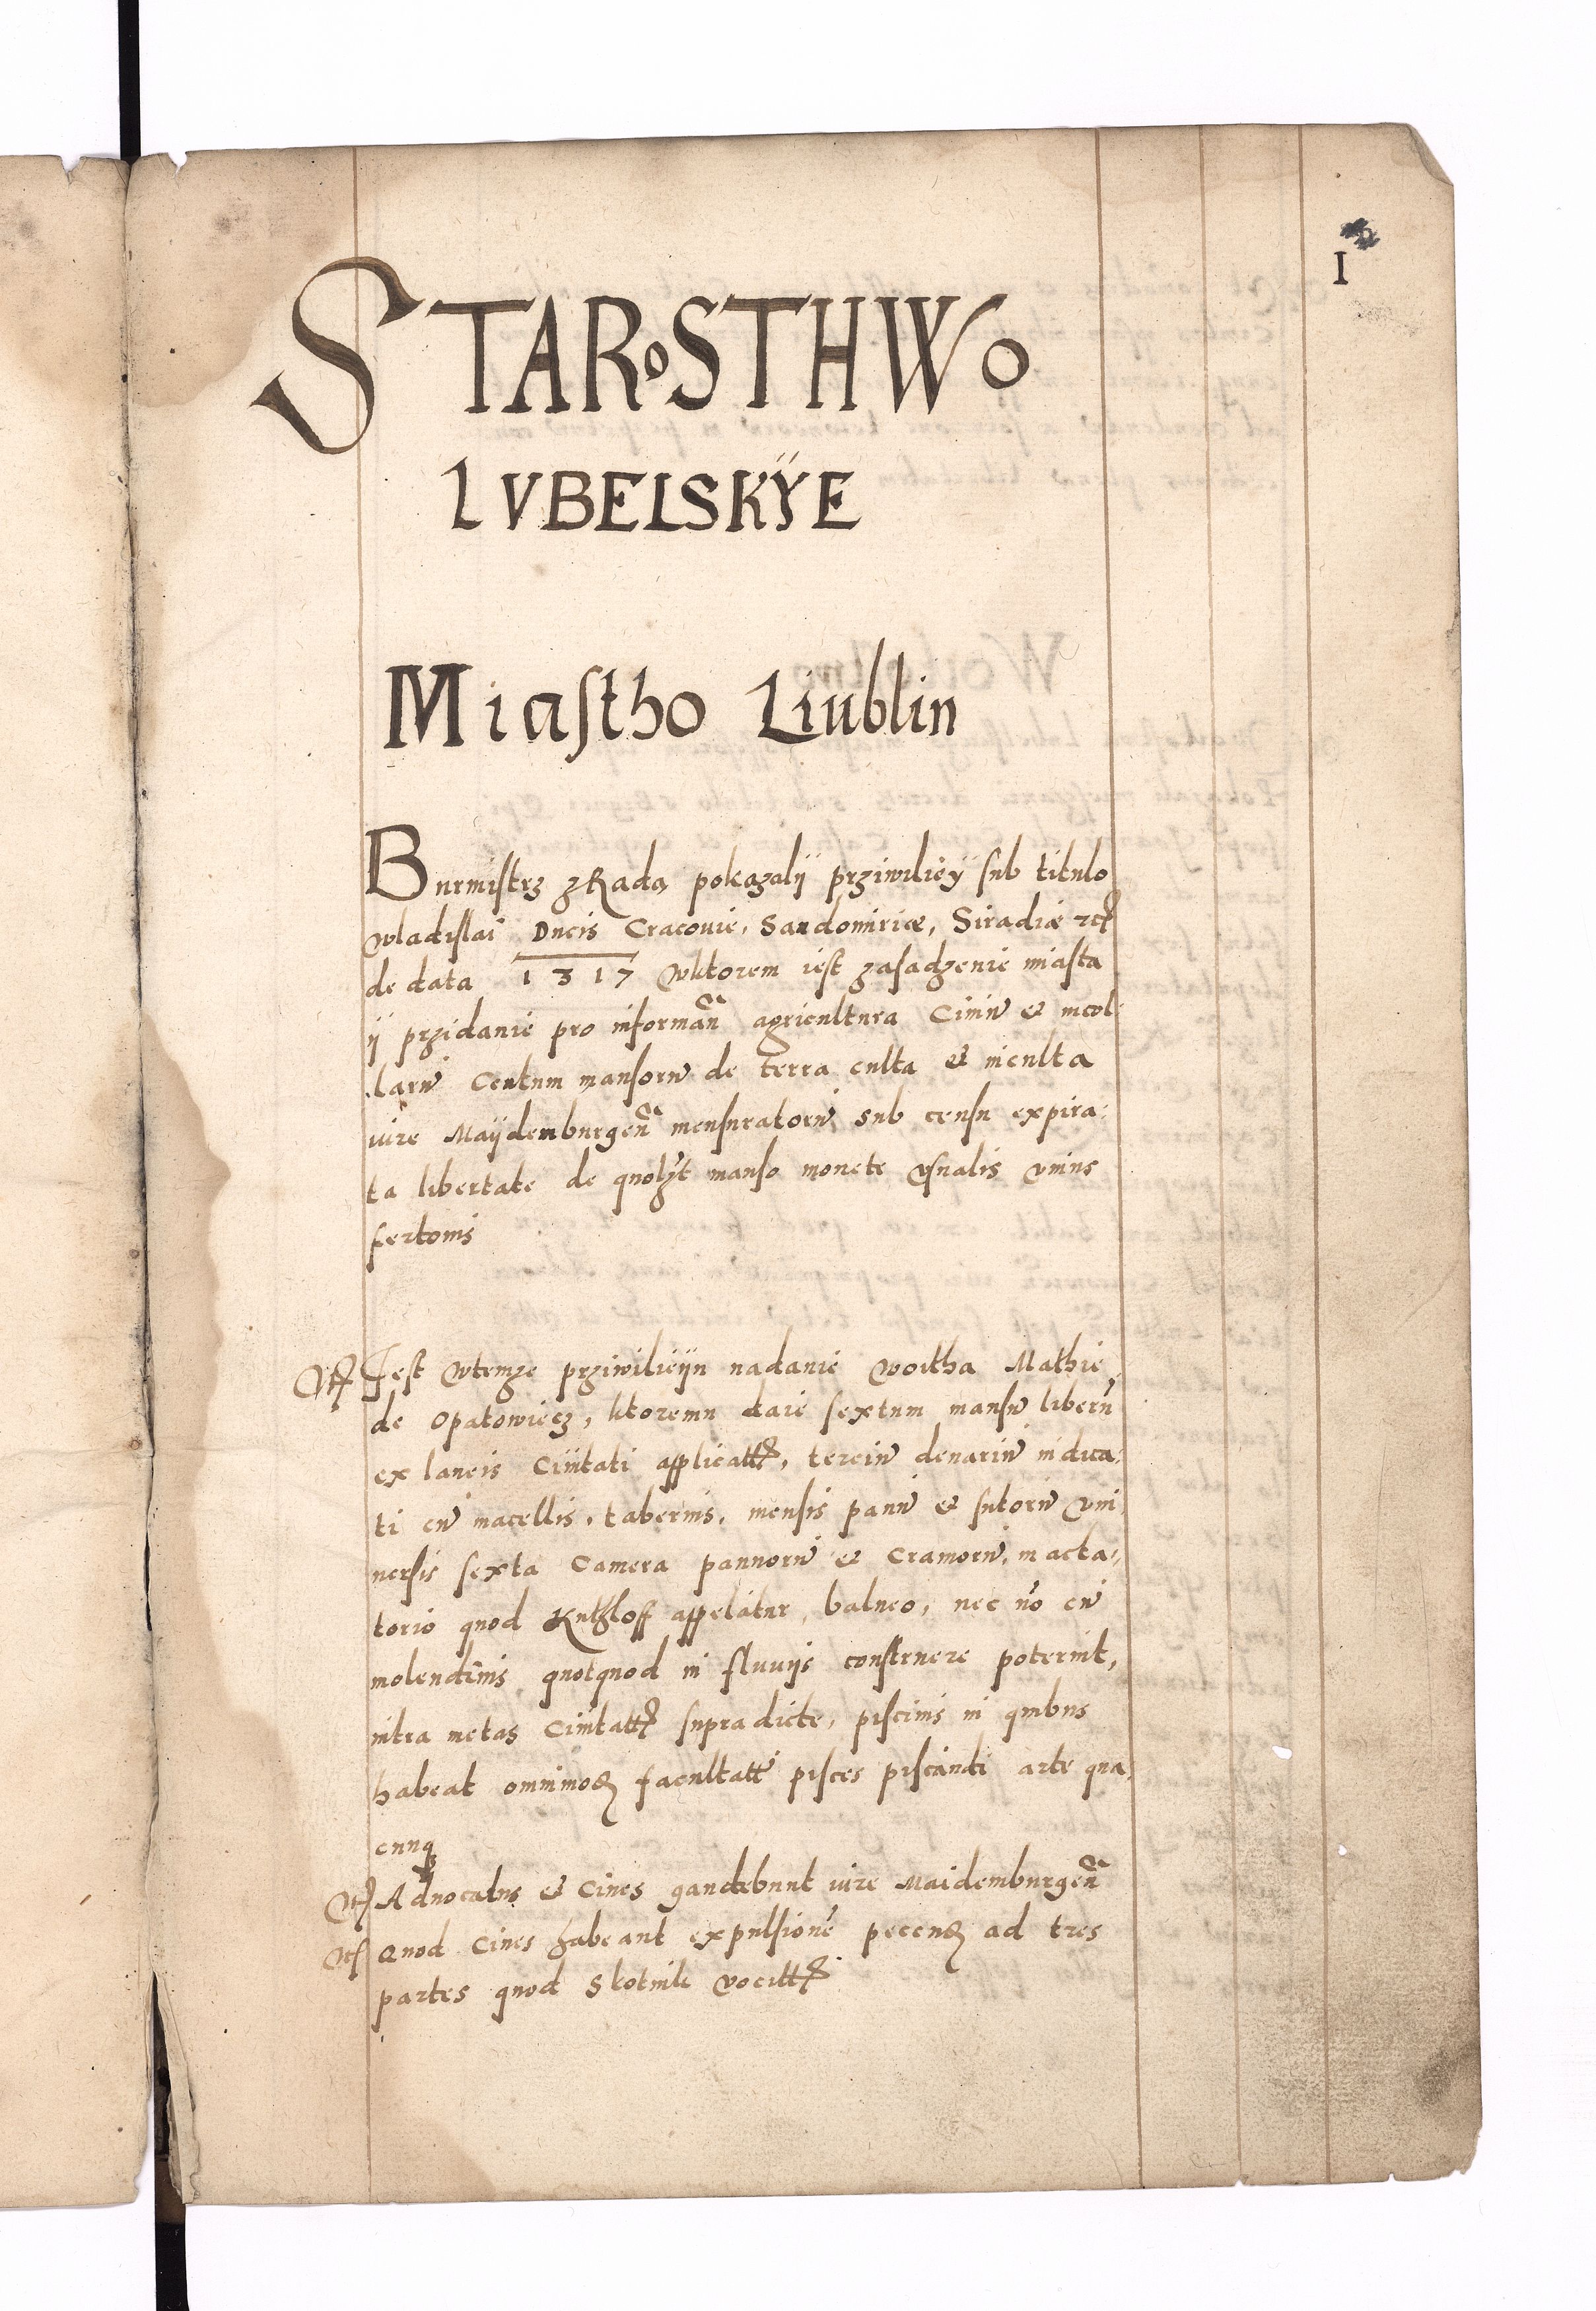 1
STAROSTHWO
LVBELSKŸE
Miastho Liublin
Burmistrz zRadą pokazalÿ prziwilieÿ sub titulo
wladislai Ducis Cracouie, Sandomiriæ, Siradiæ etc
de data 1317 wktorem iest zasadzenie miasta
ÿ przidanie pro informan̄ agricultura Ciuiū & incol-
larū Centum mansorū de terra culta & inculta
iure Maÿdenburgen̄ mensuratorū sub censu expira-
ta libertate de quolzt manso monete vsualis vnius
fertonis
Iest wtemze prziwilieÿu nadanie woitha Mathie
de Opatowiecz, ktoremu daie sextum mansū liberū
ex laneis Ciuitati applicatt, terciū denariū indica-
ti cū macellis, tabernis, mensis panū & sutorū vni-
uersis sexta Camera pannorū & Cramorū, macta-
torio quod Kuthloff appelatur, balneo, nec nō cū
molendinis quotquod in fluuÿs construere poterint,
intra metas Ciuitatt supradicte, piscinis in quibus
habeat omnimoq facultatē pisces piscandi arte qua-
cunq
Aduocatus & Ciues gaudebunt iure Maidemburgen̄
Quod Ciues habeant expulsionē peccuq ad tres
partes quod Skotnik vocitt